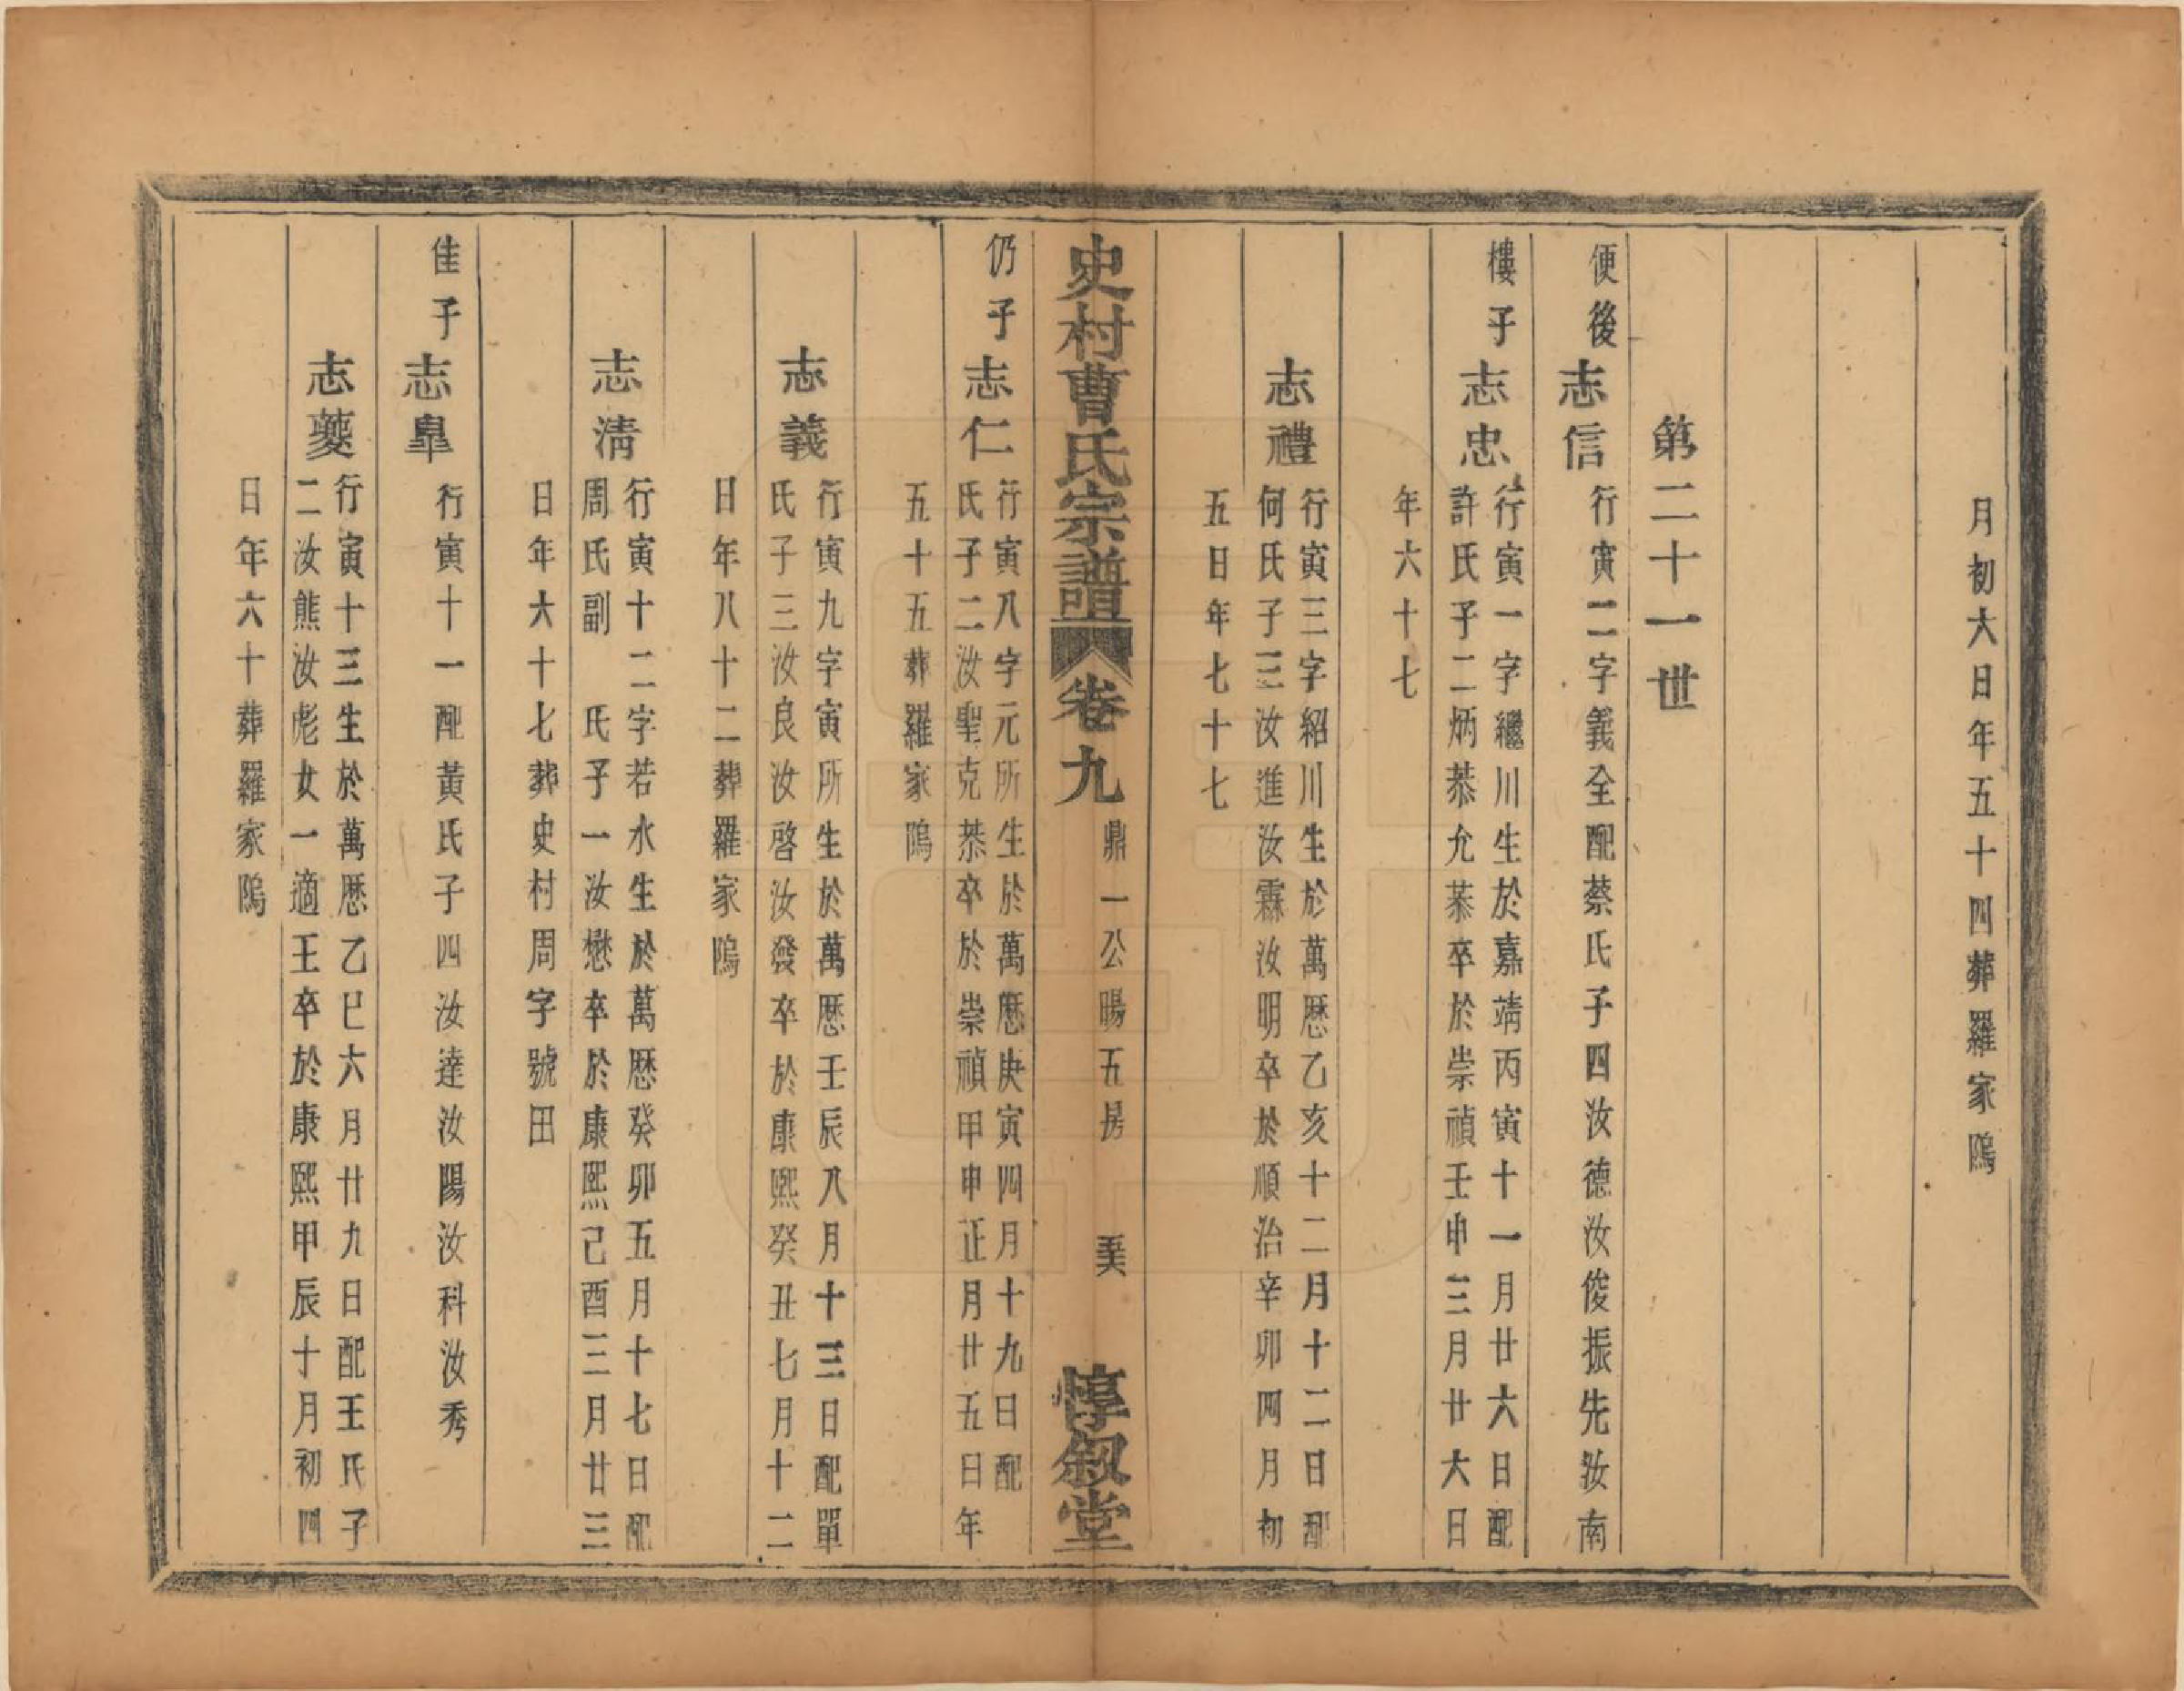 月初六日年五十四葬羅家隖
第二十一世
便後
志信
行寅二字義全配蔡氏子四汝德汝俊振先汝南
樓子
志忠
行寅一字繼川生於嘉靖丙寅十一月廿六日配
許氏子二炳恭允恭卒於崇禎壬申三月廿六日
年六十七
志禮
行寅三字紹川生於萬歷乙亥十二月十二日配
何氏子三汝進汝霖汝明卒於順治辛卯四月初
五日年七十七
史村曹氏宗譜
卷九
鼎一公暘五房
惇叙堂
仍子
志仁
行寅八字元所生於萬歷庚寅四月十九日配
氏子二汝聖克恭卒於崇禎甲申正月廿五日年
五十五葬羅家隖
志義
行寅九字寅所生於萬歷壬辰八月十三日配單
氏子三汝良汝啓汝發卒於康熙癸丑七月十二
日年八十二葬羅家隖
志清
行寅十二字若水生於萬歷癸卯五月十七日配
周氏副 氏子一汝懋卒於康熙己酉三月廿三
日年六十七葬史村周字號田
佳子
志臯
行寅十一配黃氏子四汝達汝陽汝科汝秀
志夔
行寅十三生於萬歷乙巳六月廿九日配王氏子
二汝熊汝彪女一適王卒於康熙甲辰十月初四
日年六十葬羅家隖